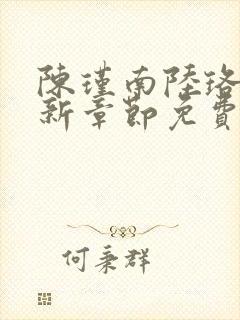 陳瑾南陸珞
新章節免費
何秉群